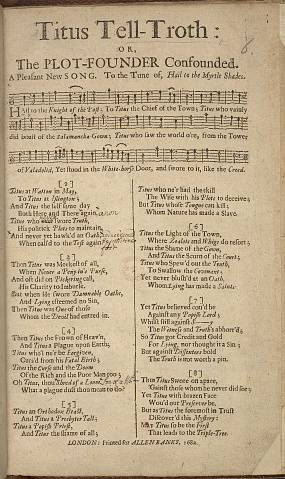 Titus Tell-Troth:
OR,
The PLOT-FOUNDER Confounded.
A Pleasant New SONG. To the Tune of, Hail to the Myrtle Shades.
8.
HAil to the Knight of the Post; To Titus the Chief of the Town; Titus who vainly
did boast of the Salamancha-Gown; Titus who saw the world o're, from the Tower
of Valadolid, Yet stood in the White-horse Door, and swore to it, like the Creed.
[2]
Titus at Watton in May,
To Titus at Islington;
And Titus the self same day
Both Here and There again.
Titus who never swore Troth,
His politick Plots to maintain,
And never yet bawk'd an Oath
When call'd to the Test again
[3]
Then Titus was Meekest of all,
When Never a Penny in's Purse,
And oft did on Pickering call,
His Charity to imburse.
But when He swore Damnable Oathe,
And Lying esteemed no Sin,
Then Titus was One of those
Whom the Devil had entred in.
[4]
Then Titus the Frown of Heav'n,
And Titus a Plague upon Earth;
Titus who'l ne're be Forgiven,
Curs'd from his Fatal Birth;
Titus the Curse and the Doom
Of the Rich and the Poor Man too;
Oh Titus, thou Shred of a Loom,
What a plague dost thou mean to do?
[5]
Titus an Orthodox Beast,
And Titus a Presbyter Tall;
Titus a Popish Priest,
And Titus the shame of all;
Titus who ne're had the skill
The Wife with his Plots to deceive;
But Titus whose Tongue can kill,
Whom Nature has made a Slave.
[6]
Titus the Light of the Town,
Where Zealots and Whigs do resort;
Titus the Shame of the Gown,
And Titus the Scorn of the Court;
Titus who Spew'd out the Truth,
To Swallow the Covenant;
Yet never blusht'd at an Oath,
Whom Lying has made a Saint.
[7]
Yet Titus believed cou'd be
Against any Popish Lord;
Whilst still against
The Witness and Truth's abhorr'd;
So Titus got Credit and Gold
For Lying, nor thought it a Sin;
But against Dissenters bold
The Truth is not worth a pin.
[8]
Thus Titus Swore on apace,
'Gainst those whom he never did see;
Yet Titus with brazen Face
Wou'd our Preserver be,
But as Titus the foremost in Trust
Discover'd this Mystery:
May Titus so be the First
That leads to the Triple-Tree.
LONDON: Printed for ALLEN BANKS, 1682.